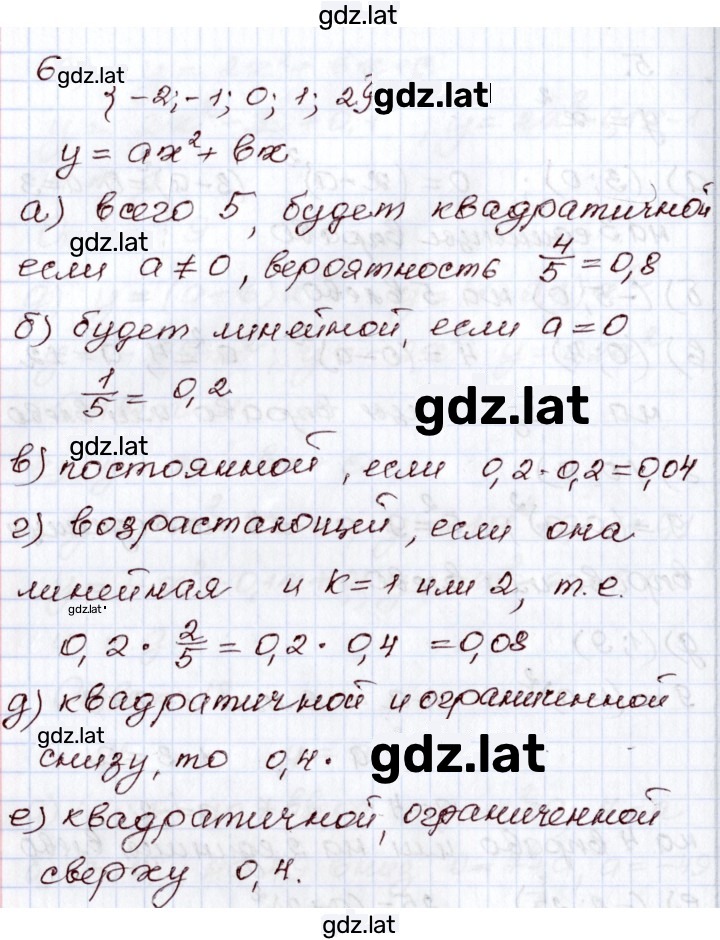 gdz.lat
6 gdz.lat
{-2; -1; 0; 1; 2} gdz.lat
y = ax² + вx
а) всего 5, будет квадратичной
gdz.lat
если a ≠ 0, вероятность 4/5 = 0,8
б) будет линейной, если a = 0
1/5 = 0,2
gdz.lat
gdz.lat
в) постоянной, если 0,2 · 0,2 = 0,04
г) возрастающей, если она
линейная и k = 1 или 2, т.е.
gdz.lat
0,2 · 2/5 = 0,2 · 0,4 = 0,08
д) квадратичной и ограниченной
gdz.lat
снизу, то 0,4.
gdz.lat
е) квадратичной, ограниченной
сверху 0,4.
gdz.lat